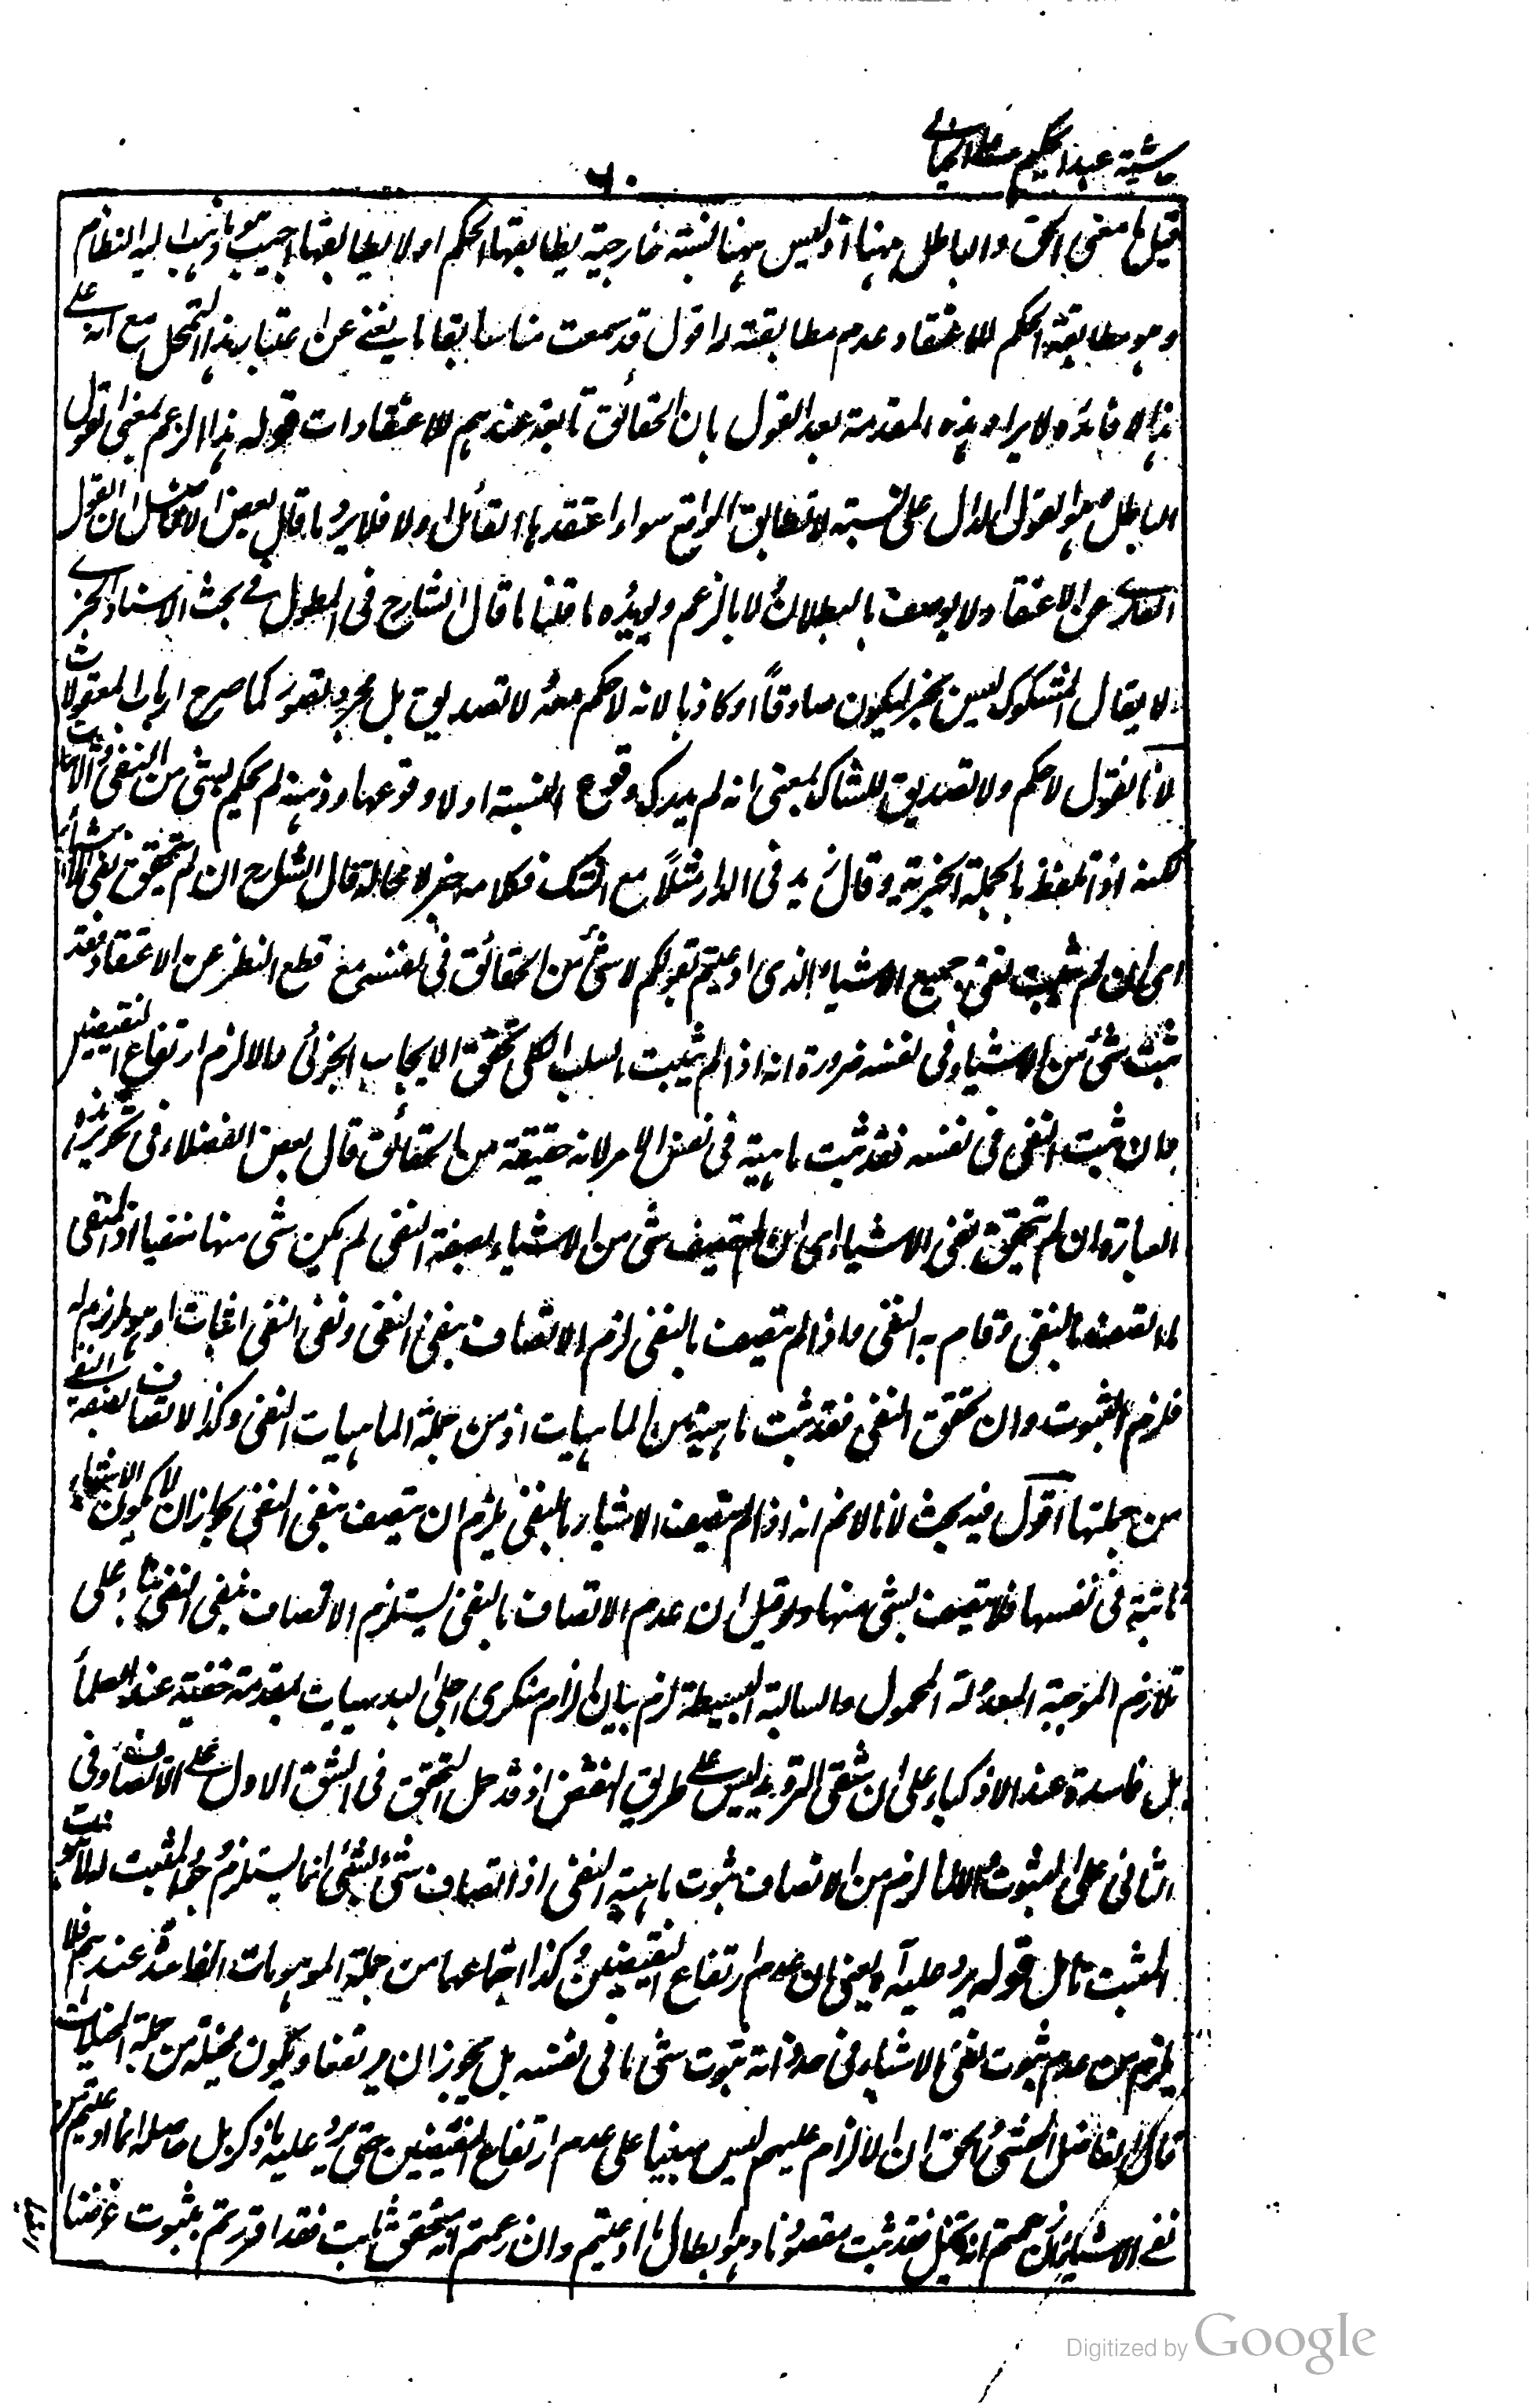 حاشية عبد الحكيم على الخيالي
٦٠
قيل ما معنى الحق والباطل ههنا اذ ليس ههنا نسبة خارجية يطابقها الحكم اولا يطابقها اجيب هو ما ذهب اليه النظام
وهو مطابقة الحكم للاعتقاد وعدم مطابقته له اقول قد سمعت منا سابقا ما يغنى عن اعتبار هذا التمحل مع انه على
هذا لا فائدة لايراد هذه المقدمة بعد القول بان الحقائق تابعة عندهم للاعتقادات قوله هذا الزعم بمعنى القول
الباطل هو القول الدال على نسبة لا تطابق الواقع سواء اعتقدها القائل اولا فلا يرد ما قال بعض الافاضل ان القول
العارى عن الاعتقاد لا يوصف بالبطلان ولا بالزعم ويؤيده ما قلنا ما قال الشارح فى المطول فى بحث الاسناد الخبرى
لا يقال المشكوك ليس بخبر ليكون صادقاً او كاذبا لانه لا حكم معه ولا تصديق بل مجرد تصور كما صرح ارباب المعقولات
لانا نقول لا حكم ولا تصديق للشاك بمعنى انه لم يدرك وقوع النسبة اولا وقوعها وذهنه لم يحكم بشئ من النفى والاثبات
لكنه اذا تلفظ بالجملة الخبرية وقال زيد فى الدار مثلاً مع الشك فكلامه خبر لا محالة قال الشارح ان لم يتحقق نفى الاشياء
اى ان لم يثبت نفى جميع الاشياء الذى ادعيتم بقولكم لا شئ من الحقائق فى نفسه مع قطع النظر عن الاعتقاد فقد
ثبت شئ من الاشياء فى نفسه ضرورة انه اذا لم يثبت السلب الكلى تحقق الايجاب الجزئى والا لزم ارتفاع النقيضين
وان ثبت النفى فى نفسه فقد ثبت ماهية فى نفس الامر لانه حقيقة من الحقائق قال بعض الفضلاء فى تحرير هذه
العبارة وان لم يتحقق نفى الاشياء اى ان لم يتصف شئ من الاشياء بصفة النفى لم يكن شئ منها منفيا اذ المنفى
ما اتصف بالنفى وقام به النفى واذا لم يتصف بالنفى لزم الاتصاف بنفى النفى ونفى النفى اثبات او هو ملزوم له
فلزم الثبوت وان تحقق النفى فقد ثبت ماهية من الماهيات اذ من جملة الماهيات النفى وكذا الاتصاف بصفة النفى
من جملتها اقول فيه بحث لانا لا نم انه اذا لم يتصف الاشياء بالنفى يلزم ان يتصف بنفى النفى لجواز ان لا يكون الاشياء
ثابتة فى نفسها فلا يتصف بشئ منها ولو قيل ان عدم الاتصاف بالنفى يستلزم الاتصاف بنفى النفى بناء على
تلازم الموجبة المعدولة المحمول والسالبة البسيطة لزم بيان الزام منكرى اجلى البديهيات بمقدمة خفية عند العلماء
بل فاسدة عند الاذكياء على ان شقى الترديد ليس على طريق النقض اذ قد حمل التحقق فى الشق الاول على الاتصاف وفى
الثانى على الثبوت والا لما لزم من الاتصاف ثبوت ماهية النفى اذ اتصاف شئ بشئ انما يستلزم وجود المثبت له لا ثبوت
المثبت تامل قوله يرد عليه آه يعنى ان عدم ارتفاع النقيضين وكذا اجتماعهما من جملة الموهومات الفاسدة عندهم فلا
يلزم من عدم ثبوت نفى الاشياء فى حد ذاته ثبوت شئ ما فى نفسه بل يجوز ان يرتفعا ويكون مخيلة من جملة المخيلات
قال الفاضل المحشى والحق ان الالزام عليهم ليس مبنيا على عدم ارتفاع النقيضين حتى يرد عليه ما ذكر بل حاصله انما ادعيتم من
نفى الاشياء ان زعمتم انه تخيل فقد ثبت مقصودنا وهو ابطال ما ادعيتم وان زعمتم انه متحقق ثابت فقد اقررتم بثبوت غرضنا
Digitized by Google